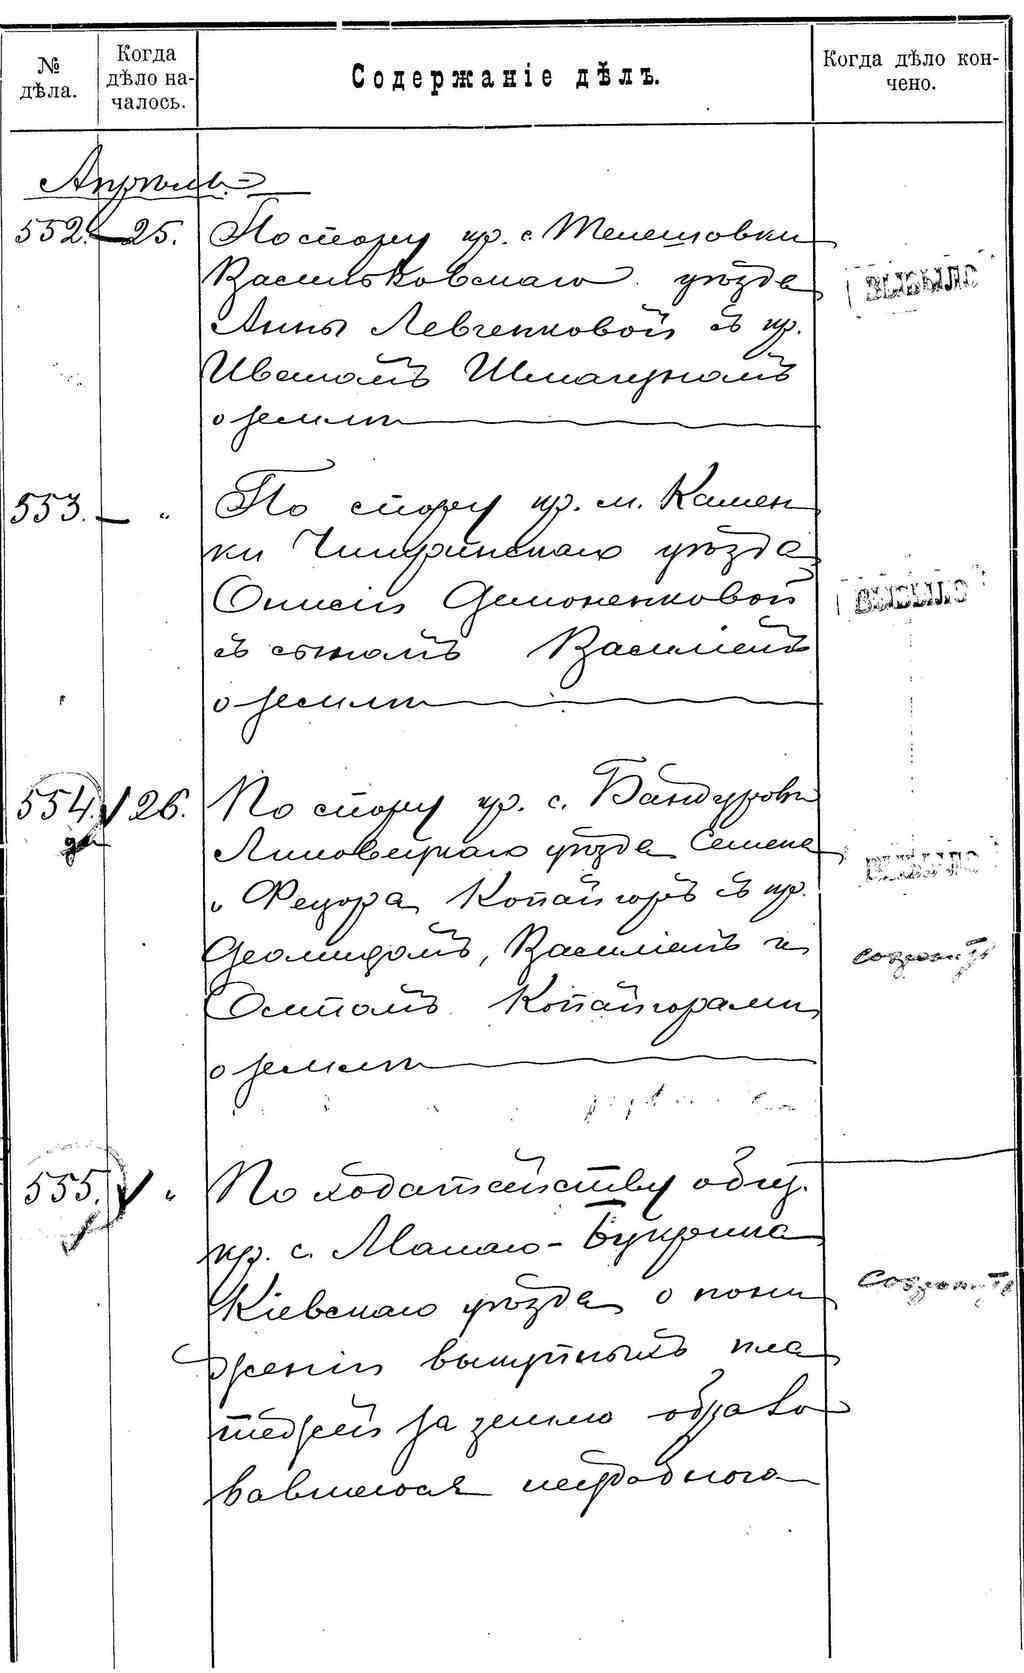 № дѣла.
Когда дѣло на-
чалось.
Содержаніе дѣлъ.
Когда дѣло кон-
чено.
Апрѣль
552. 25. По спору кр. с. Телешовки
Васильковскаго уѣзда
Анны Левченковой съ кр.
Иваномъ Шмагуномъ
о землѣ
выбыло
553. — " По спору кр. м. Камен
ки Чигиринскаго уѣзда
Онисіи Демоненковой
съ сыномъ Василіемъ
о землѣ
выбыло
554. 26. По спору кр. с. Бандуровки
Липовецкаго уѣзда Семена
и Федора Копайгоръ съ кр.
Деомидомъ, Василіемъ и
Осипомъ Копайгорами
о землѣ
выбыло
сохранить
555. " По ходатайству общ.
кр. с. Малаго-Букрина
Кіевскаго уѣзда о пони
женіи выкупныхъ пла
тежей за землю образо
вавшеюся негодною
сохранить